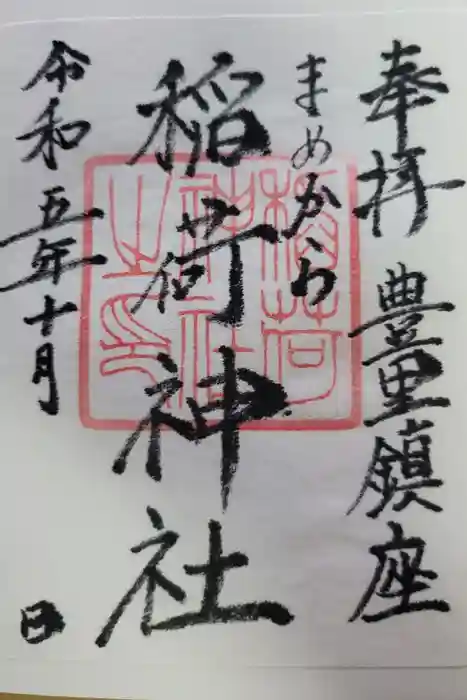 奉拝 豊里鎮座
まめから
稲荷神社
令和五年十月 日
稲荷
神社
之印